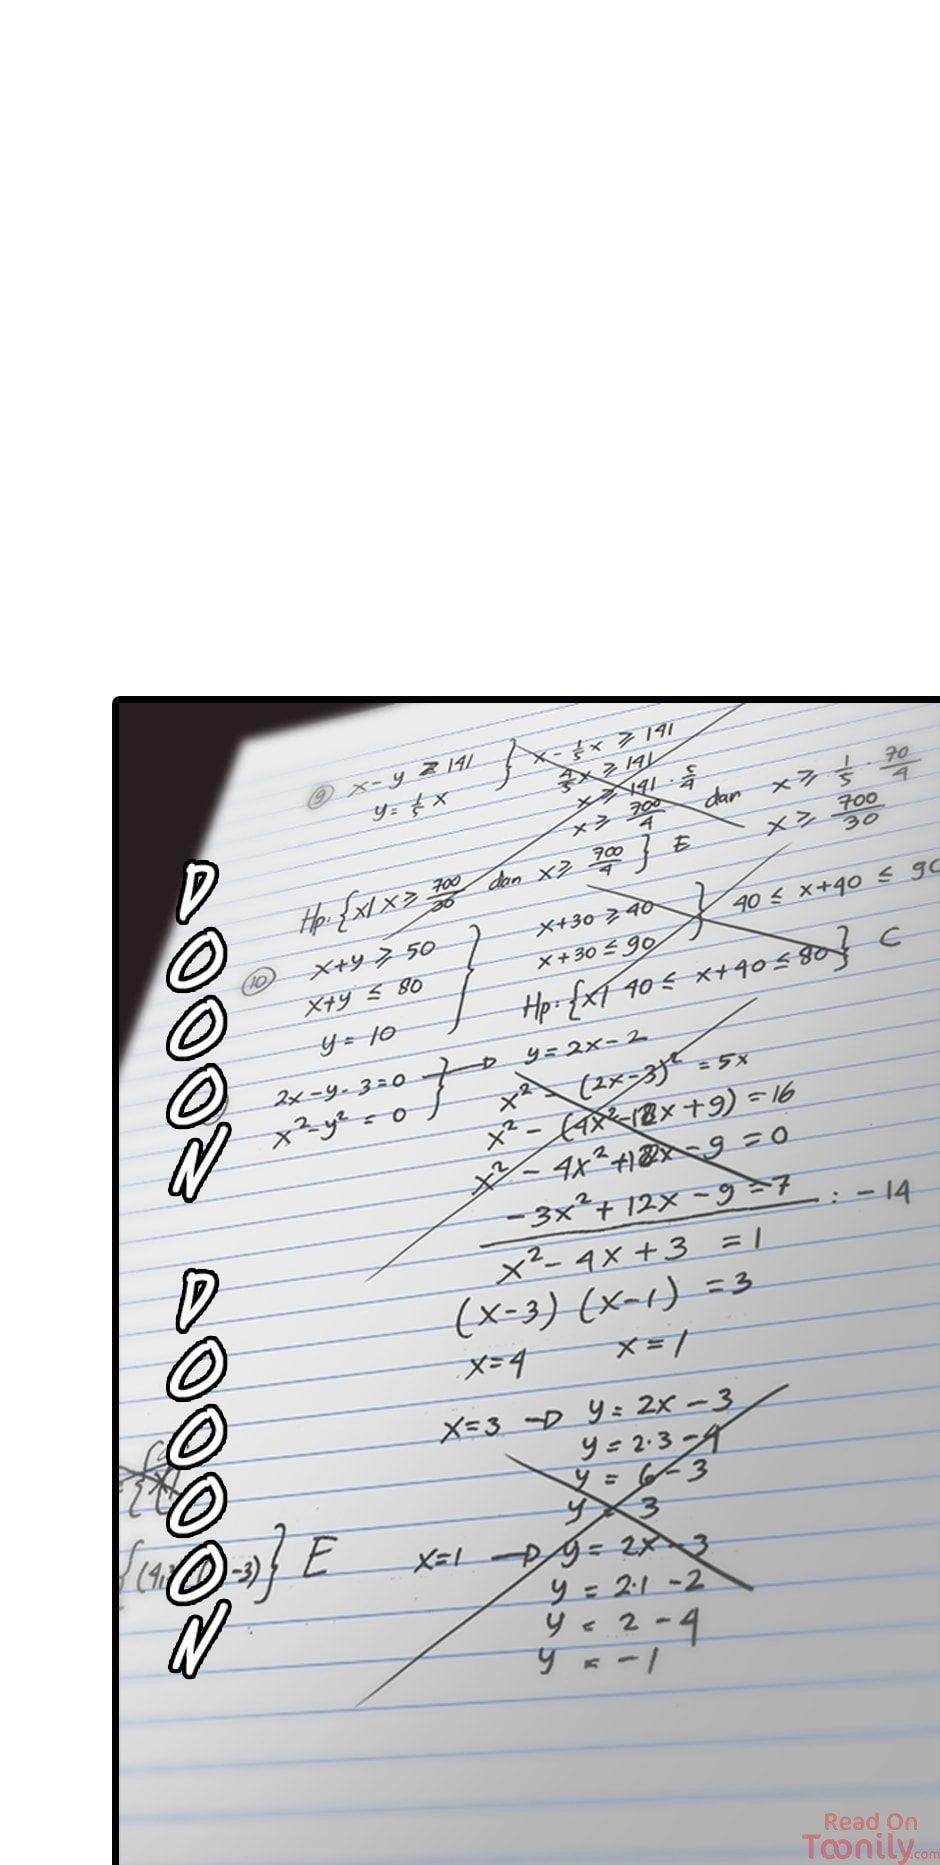 9 x-y ≥ 141
y = 1/5 x
x - 1/5 x ≥ 141
4/5 x ≥ 141
x ≥ 141 · 5/4
x ≥ 700/4 dan x ≥ 1/5 · 70/4
x ≥ 700/30
Hp: {x| x ≥ 700/30 dan x ≥ 700/4} E
10 x+y ≥ 50
x+y ≤ 80
y = 10
x+30 ≥ 40
x+30 ≤ 90
40 ≤ x+40 ≤ 90
Hp: {x| 40 ≤ x+40 ≤ 80} C
2x-y-3=0 → y=2x-2
x²-y² = 0
x² - (2x-3)² = 5x
x² - (4x²-12x+9) = 16
x² - 4x²+12x-9 = 0
-3x²+12x-9=7 : -14
x²-4x+3 = 1
(x-3) (x-1) = 3
x=4 x=1
x=3 → y=2x-3
y=2·3-4
y = 6-3
y = 3
x=1 → y=2x-3
y = 2·1-2
y = 2-4
y = -1
-3)} E
DOOON
DOOOON
Read On
Toonily.com